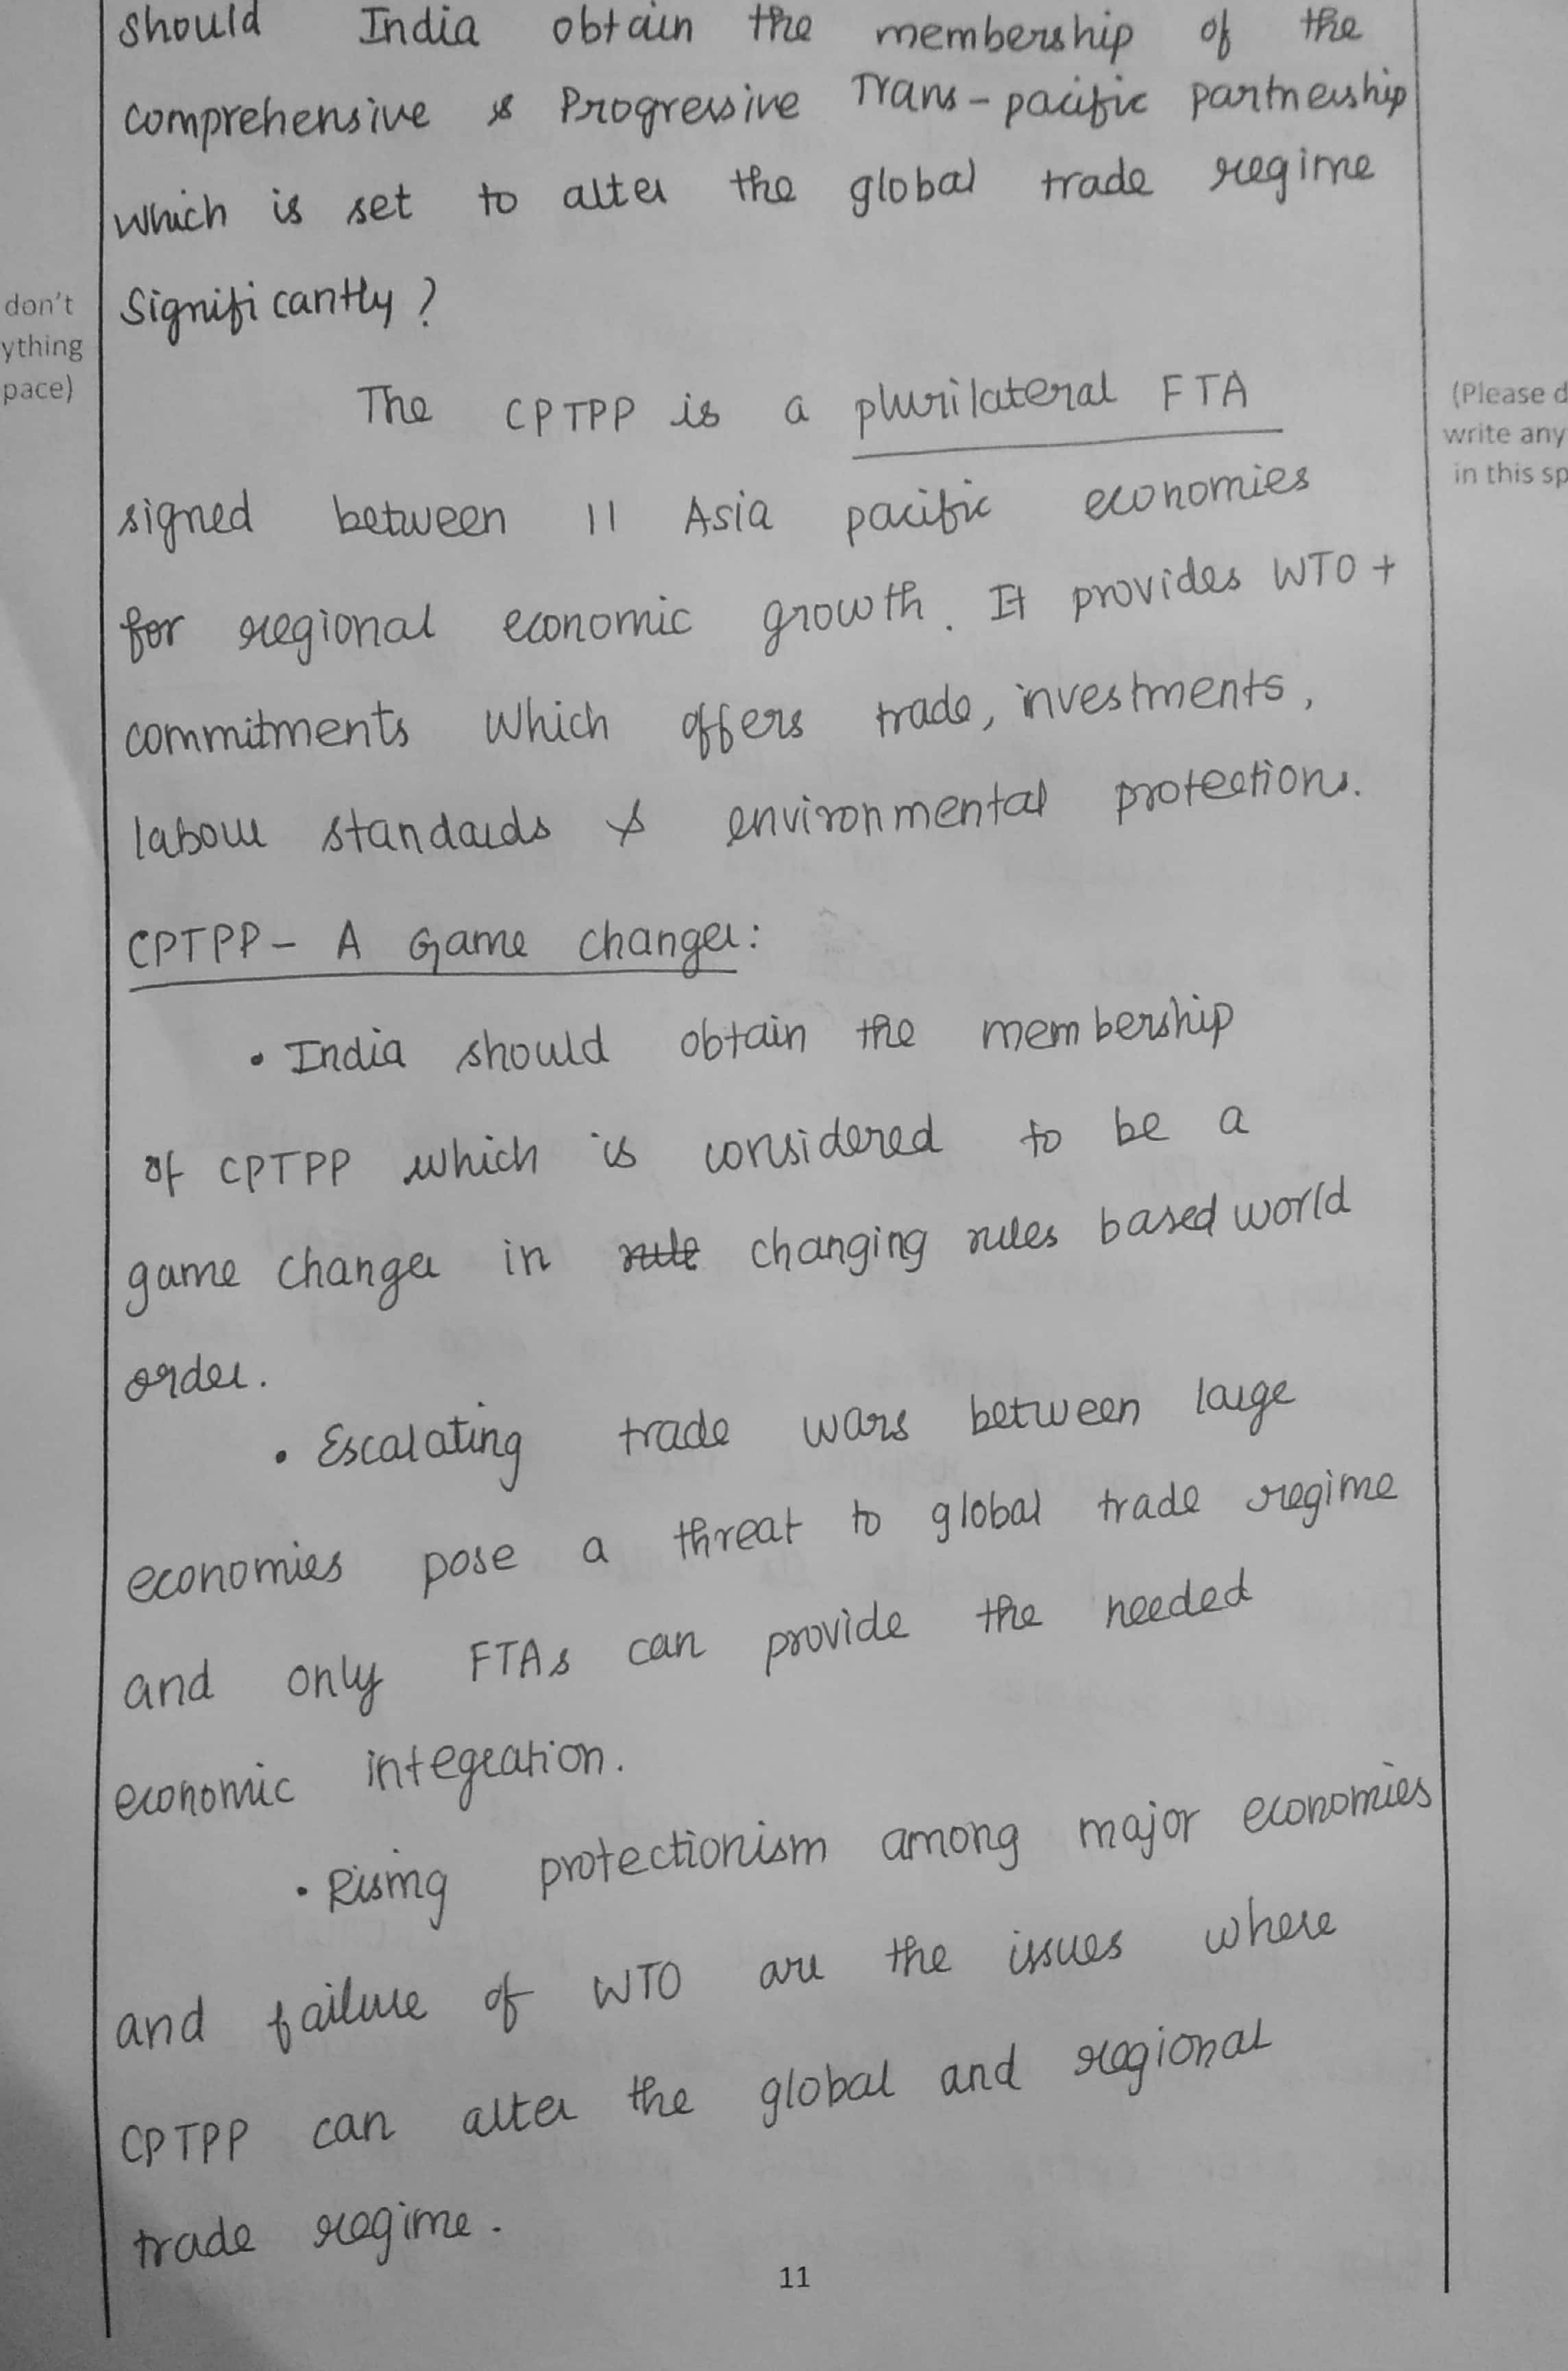 should India obtain the membership of the
comprehensive & Progressive Trans-pacific partnership
which is set to alter the global trade regime
significantly?
don't
ything
pace)
The CPTPP is a plurilateral FTA
(Please d
write any
in this sp
signed between 11 Asia pacific economies
for regional economic growth. It provides WTO+
commitments which offers trade, investments,
labour standards & environmental protections.
CPTPP - A Game changer:
• India should obtain the membership
of CPTPP which is considered to be a
game changer in rule changing rules based world
order.
• Escalating trade wars between large
economies pose a threat to global trade regime
and only FTAs can provide the needed
economic integration.
• Rising protectionism among major economies
and failure of WTO are the issues where
CPTPP can alter the global and regional
trade regime.
11